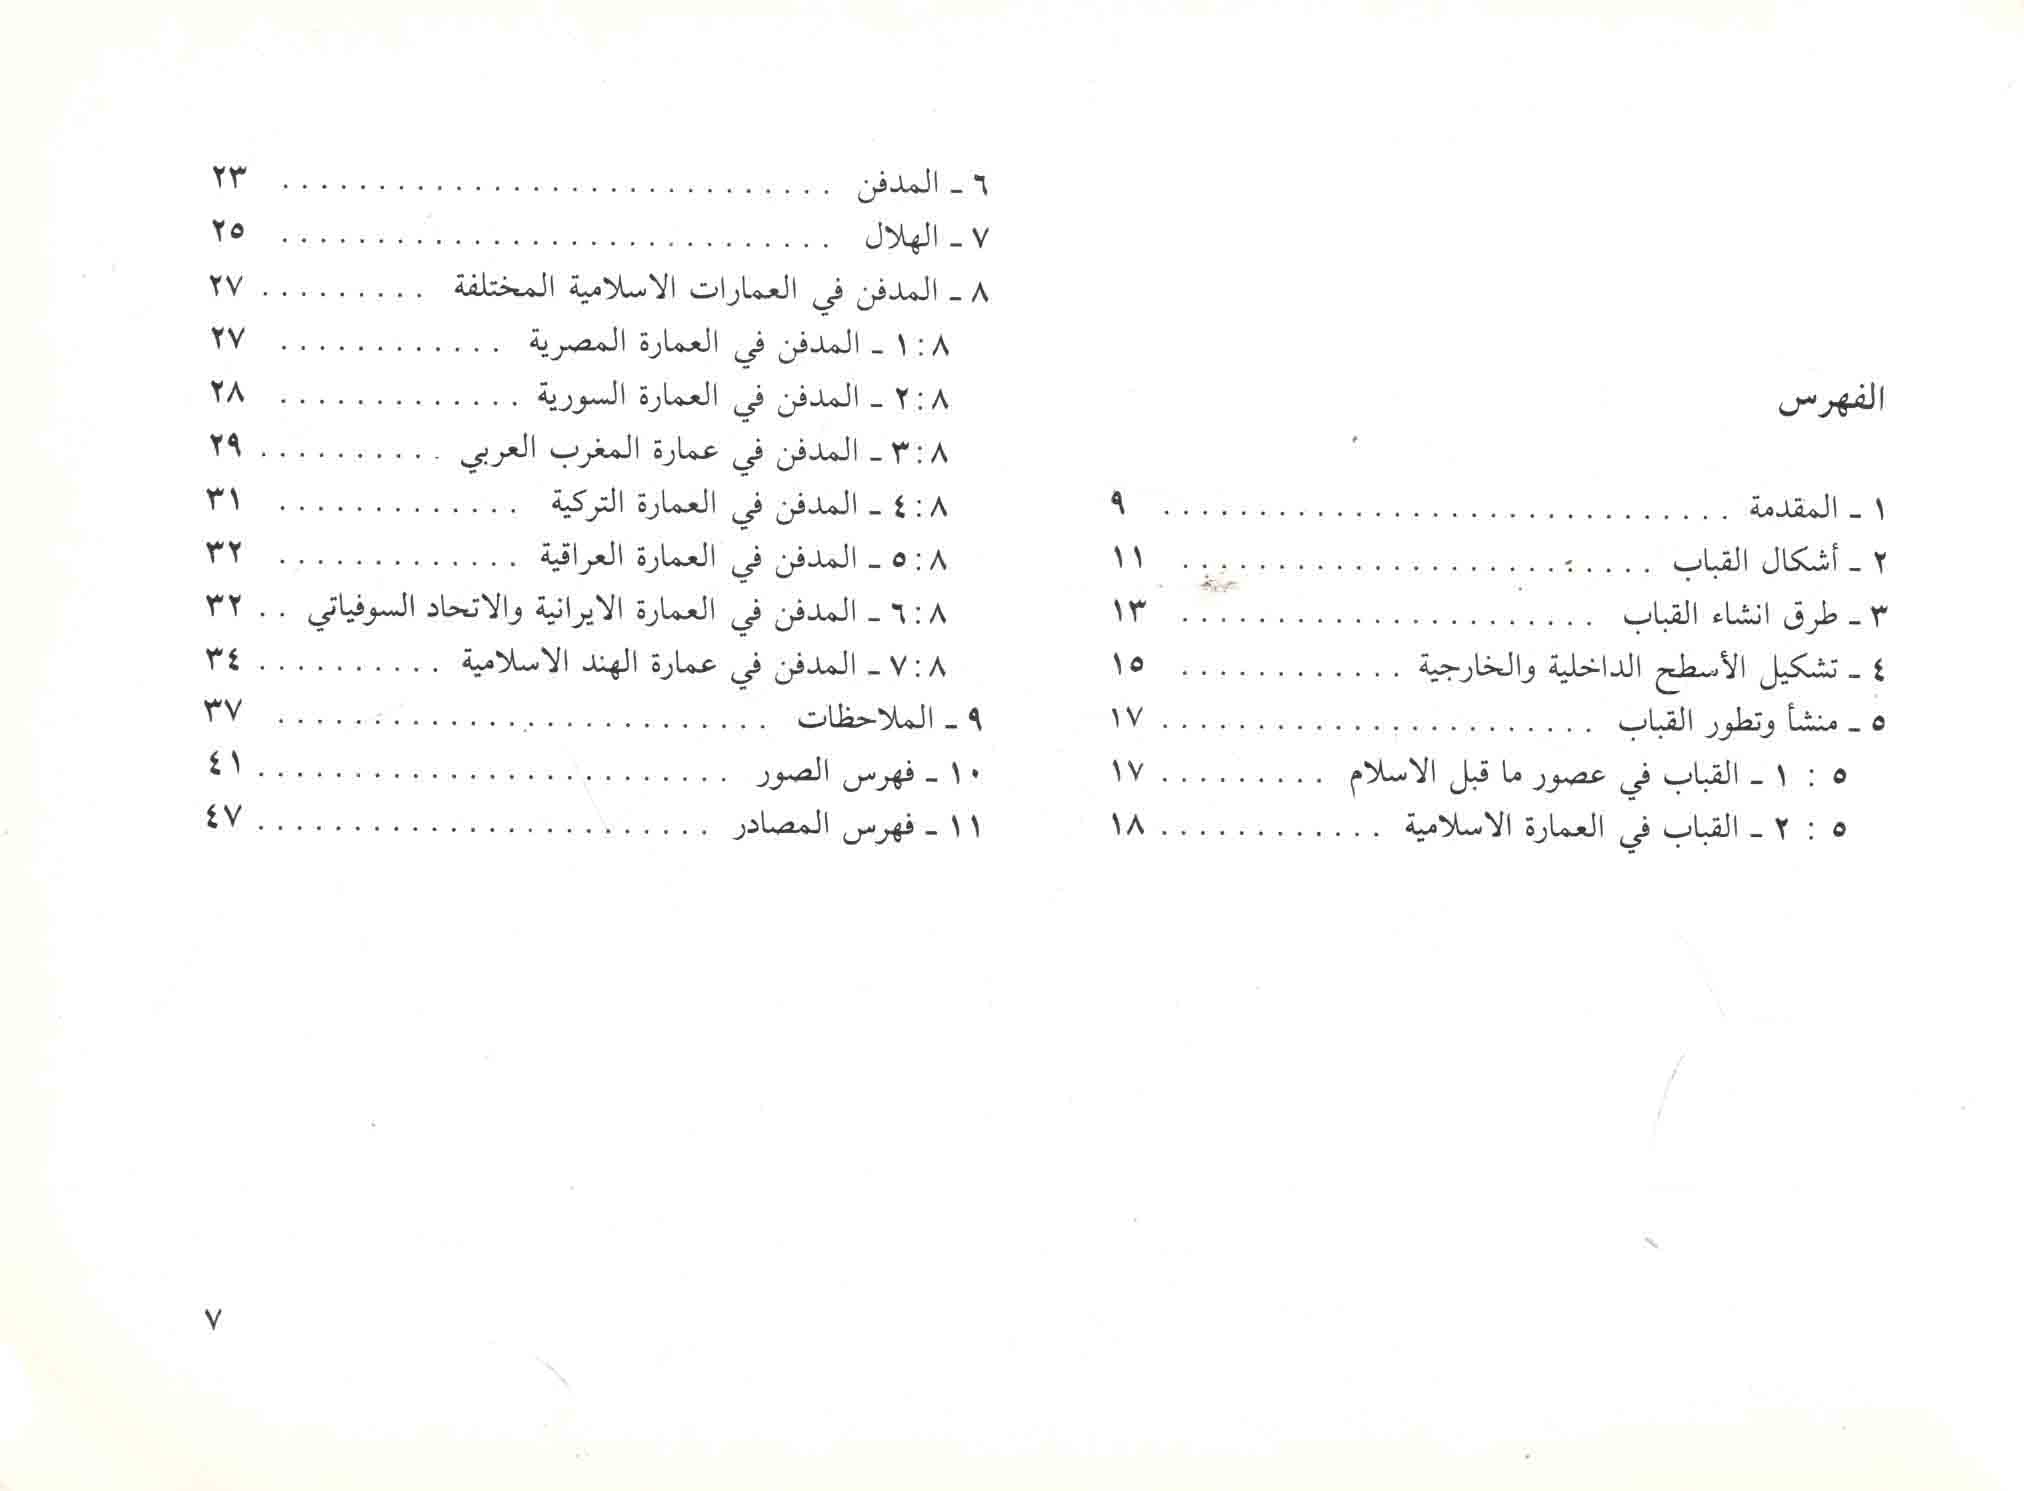 الفهرس
١ ـ المقدمة . . . . . . . . . . . . . . . . . . . . . . . . . . . . . . ٩
٢ ـ أشكال القباب . . . . . . . . . . . . . . . . . . . . . . . . . ١١
٣ ـ طرق انشاء القباب . . . . . . . . . . . . . . . . . . . . . . ١٣
٤ ـ تشكيل الأسطح الداخلية والخارجية . . . . . . . . . . . . ١٥
٥ ـ منشأ وتطور القباب . . . . . . . . . . . . . . . . . . . . . . . ١٧
٥ : ١ ـ القباب في عصور ما قبل الاسلام . . . . . . . . . ١٧
٥ : ٢ ـ القباب في العمارة الاسلامية . . . . . . . . . . . . ١٨
٦ ـ المدفن . . . . . . . . . . . . . . . . . . . . . . . . . . . . . ٢٣
٧ ـ الهلال . . . . . . . . . . . . . . . . . . . . . . . . . . . . . ٢٥
٨ ـ المدفن في العمارات الاسلامية المختلفة . . . . . . . . . ٢٧
٨:١ ـ المدفن في العمارة المصرية . . . . . . . . . . . . ٢٧
٨:٢ ـ المدفن في العمارة السورية . . . . . . . . . . . . . ٢٨
٨:٣ ـ المدفن في عمارة المغرب العربي . . . . . . . . . . ٢٩
٨:٤ ـ المدفن في العمارة التركية . . . . . . . . . . . . . ٣١
٨:٥ ـ المدفن في العمارة العراقية . . . . . . . . . . . . . ٣٢
٨:٦ ـ المدفن في العمارة الايرانية والاتحاد السوفياتي . . ٣٢
٨:٧ ـ المدفن في عمارة الهند الاسلامية . . . . . . . . . . ٣٤
٩ ـ الملاحظات . . . . . . . . . . . . . . . . . . . . . . . . . . ٣٧
١٠ ـ فهرس الصور . . . . . . . . . . . . . . . . . . . . . . . . . ٤١
١١ ـ فهرس المصادر . . . . . . . . . . . . . . . . . . . . . . . . ٤٧
٧